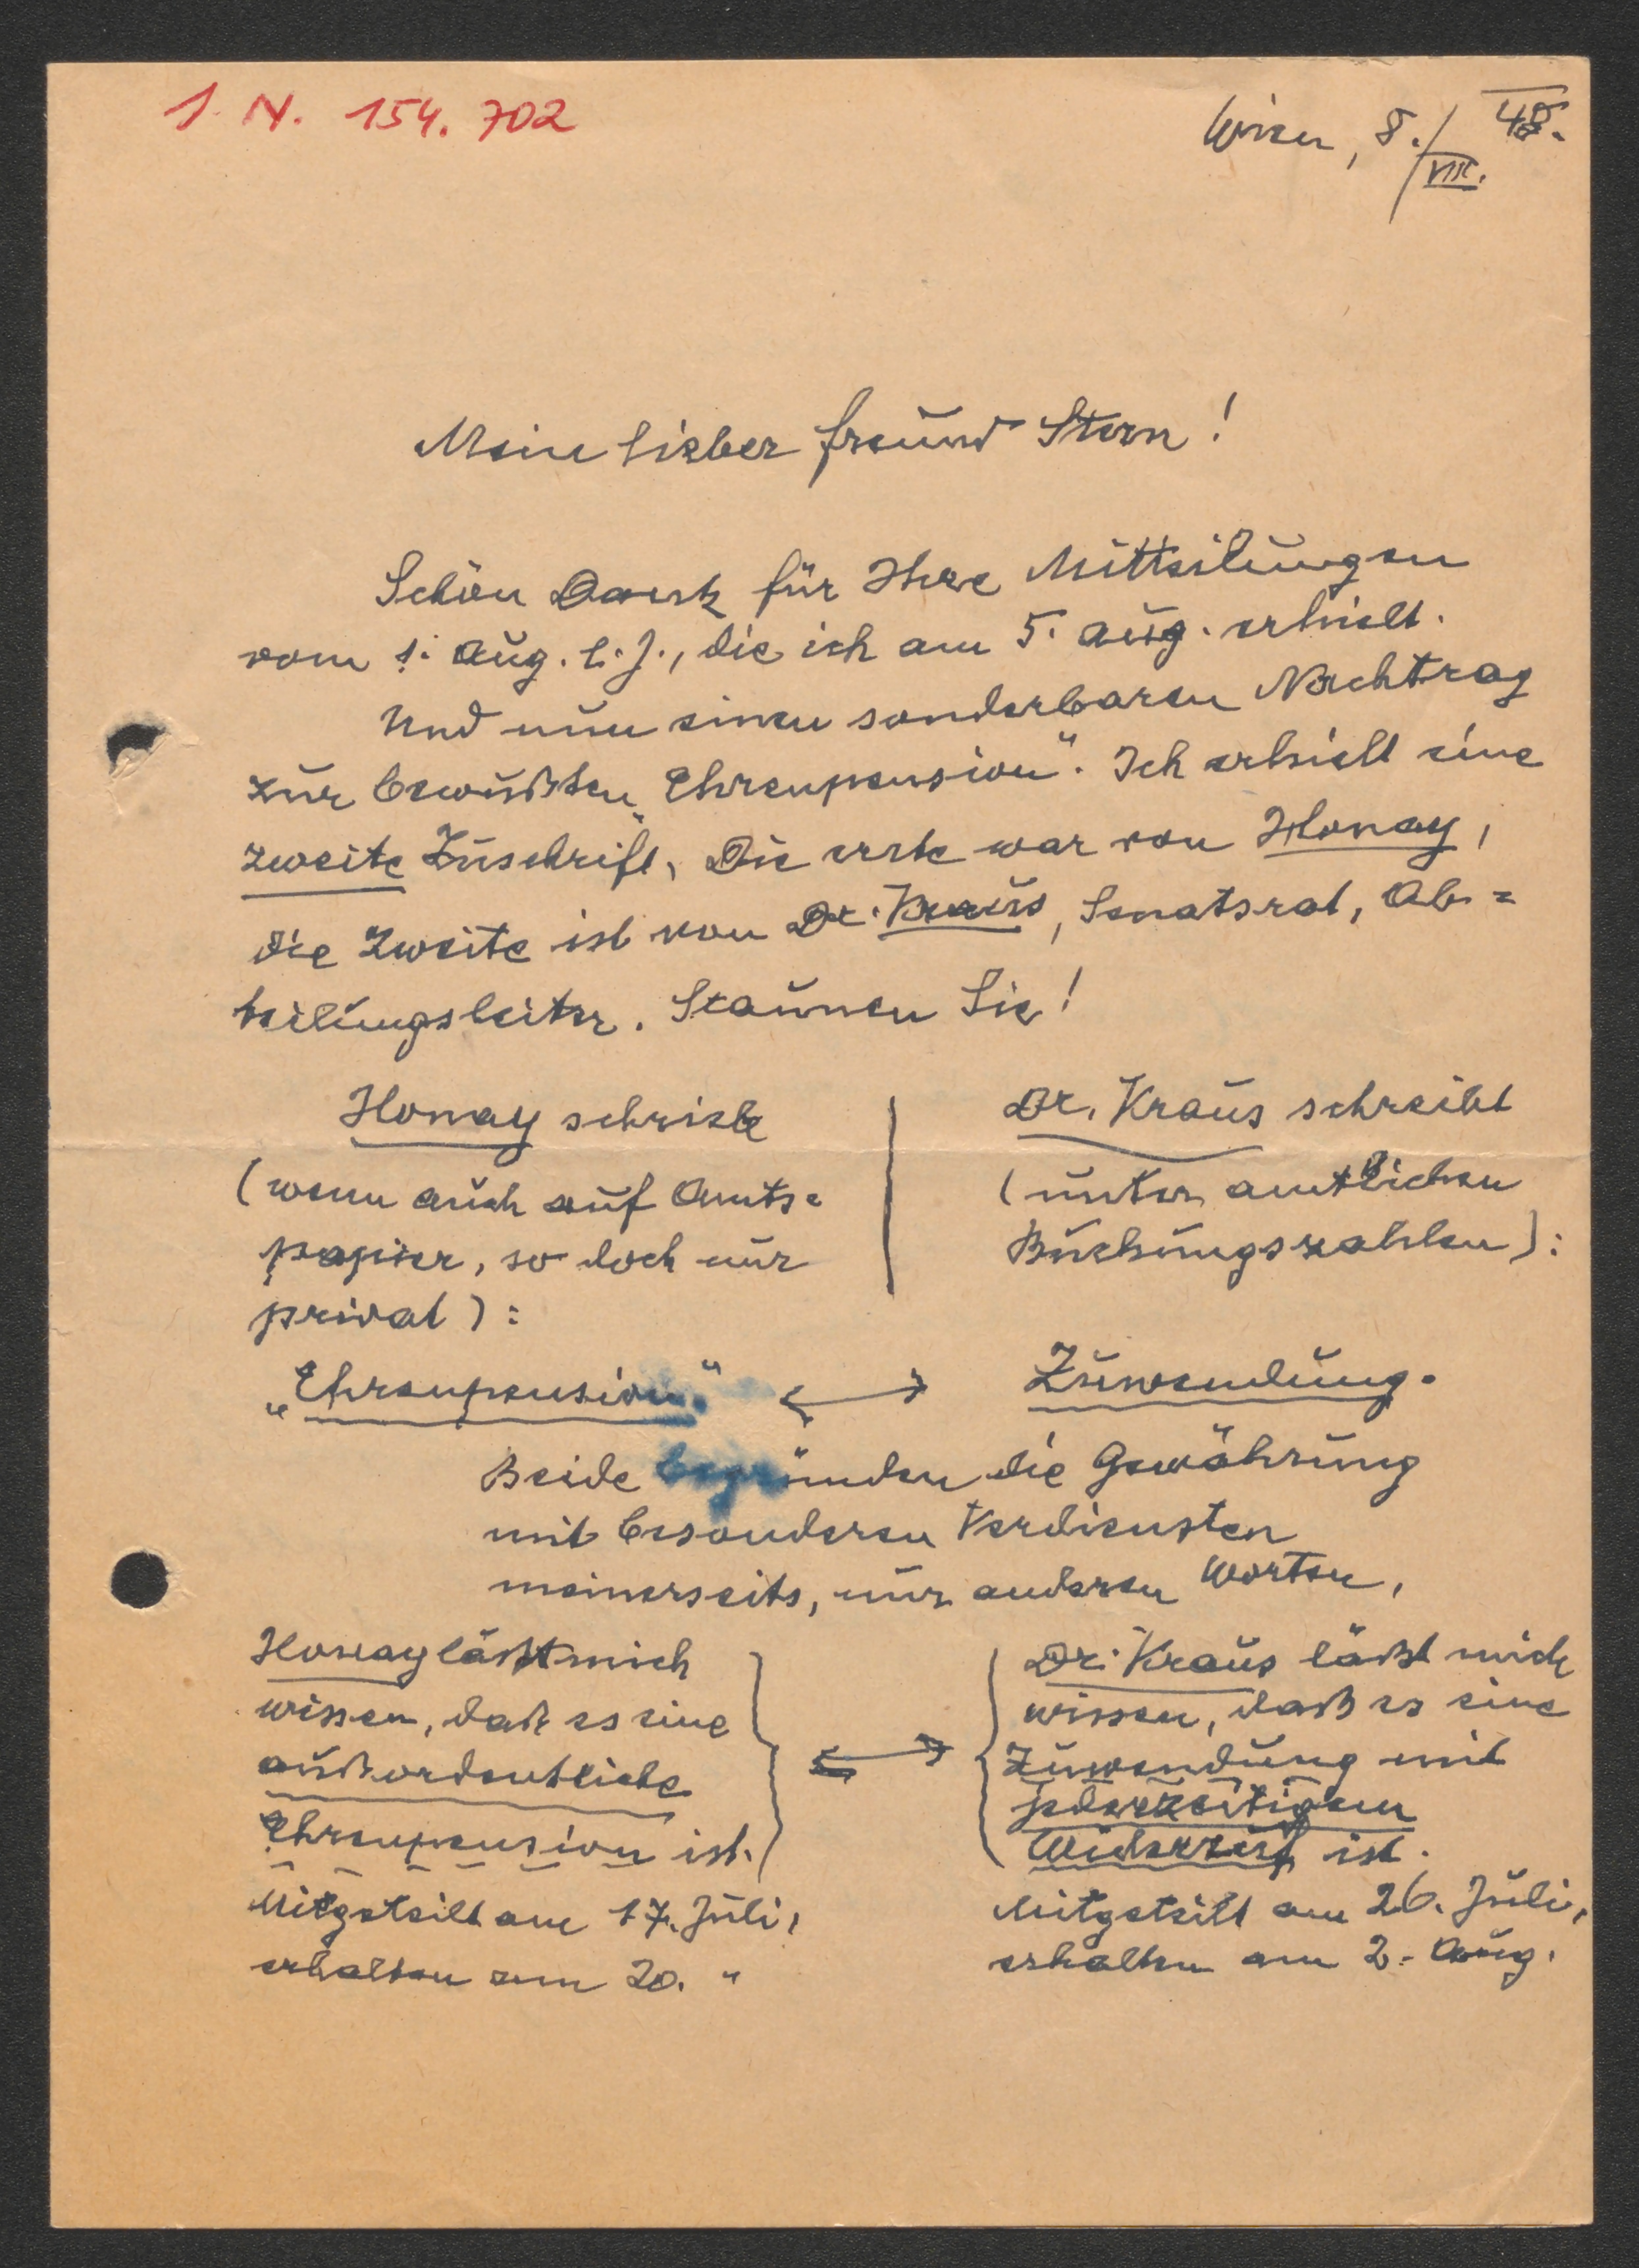 I. N. 154.702
Wien, 8./VIII. 48.
Mein lieber Freund Stern!
Schön Dank für Ihre Mitteilungen
vom 1. Aug. l. J., die ich am 5. Aug. erhielt.
Und nun einen sonderbaren Nachtrag
zur bewußten „Ehrenpension“. Ich erhielt eine
zweite Zuschrift. Die erste war von Honay,
die zweite ist von Dr. Kraus, Senatsrat, Ab=
teilungsleiter. Staunen Sie!
Honay schrieb
(wenn auch auf Amts=
papier, so doch nur
privat):
Dr. Kraus schreibt
(unter amtlichen
Buchungszahlen):
„Ehrenpension“ ↔ Zuwendung.
Beide begründen die Gewährung
mit besonderen Verdiensten
meinerseits, nur anderen Worten,
Honay läßt mich
wissen, daß es eine
außerordentliche
Ehrenpension ist.
Mitgeteilt am 17. Juli,
erhalten am 20. "
↔
Dr. Kraus läßt mich
wissen, daß es eine
Zuwendung mit
jederzeitigem
Widerruf ist.
Mitgeteilt am 26. Juli,
erhalten am 2. Aug.